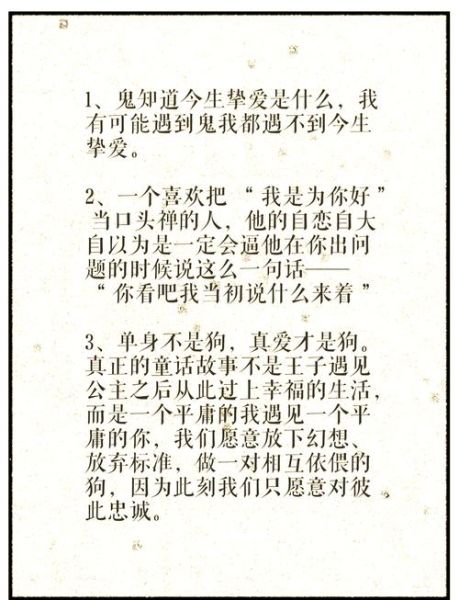 1、鬼知道今生挚爱是什么，我
有可能遇到鬼我都遇不到今生
挚爱。
2、一个喜欢把“我是为你好”
当口头禅的人，他的自恋自大
自以为是一定会逼他在你出问
题的时候说这么一句话——
“你看吧我当初说什么来着”
3、单身不是狗，真爱才是狗。
真正的童话故事不是王子遇见
公主之后从此过上幸福的生活，
而是一个平庸的我遇见一个平
庸的你，我们愿意放下幻想、
放弃标准，做一对相互依偎的
狗，因为此刻我们只愿意对彼
此忠诚。